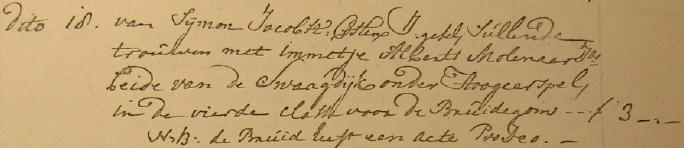 dito 18. van Sijmon Jacobsz. Costen J. gesel, Sullende
trouwen met immetje Alberts Molenaar
beide van de Swaagdijk onder Hoogcarspel,
in de vierde classe voor de Bruidegom --- f 3 -.-
N.B. de Bruid heeft een acte ProDeo. -